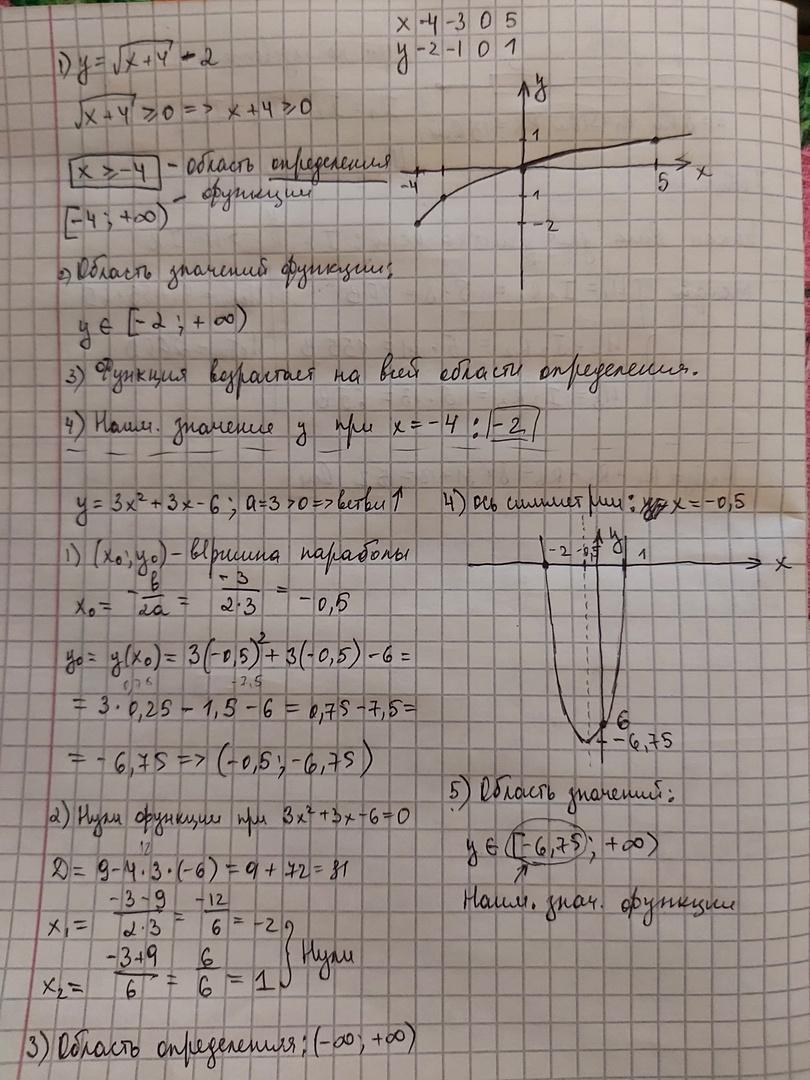 x -4 -3 0 5
y -2 -1 0 1
1) y = √x+4 - 2
√x+4 ≥ 0 => x+4 ≥ 0
x ≥ -4 - область определения
[-4; +∞) - функции
y
1
-4
5
x
1
-2
2) Область значений функции:
y ∈ [-2; +∞)
3) Функция возрастает на всей области определения.
4) Наим. значение y при x = -4 : -2
y = 3x² + 3x - 6; a = 3 > 0 => ветви ↑
1) (x₀; y₀) - вершина параболы
x₀ = -b/2a = -3/2·3 = -0,5
y₀ = y(x₀) = 3(-0,5)² + 3(-0,5) - 6 =
= 3 · 0,25 - 1,5 - 6 = 0,75 - 7,5 =
= -6,75 => (-0,5; -6,75)
2) Нули функции при 3x² + 3x - 6 = 0
12
D = 9 - 4 · 3 · (-6) = 9 + 72 = 81
x₁ = -3-9/2·3 = -12/6 = -2
x₂ = -3+9/6 = 6/6 = 1 } Нули
3) Область определения: (-∞; +∞)
4) ось симметрии: x = -0,5
-2 -0,5 y 1
x
6
-6,75
5) Область значений:
y ∈ [-6,75; +∞)
Наим. знач. функции